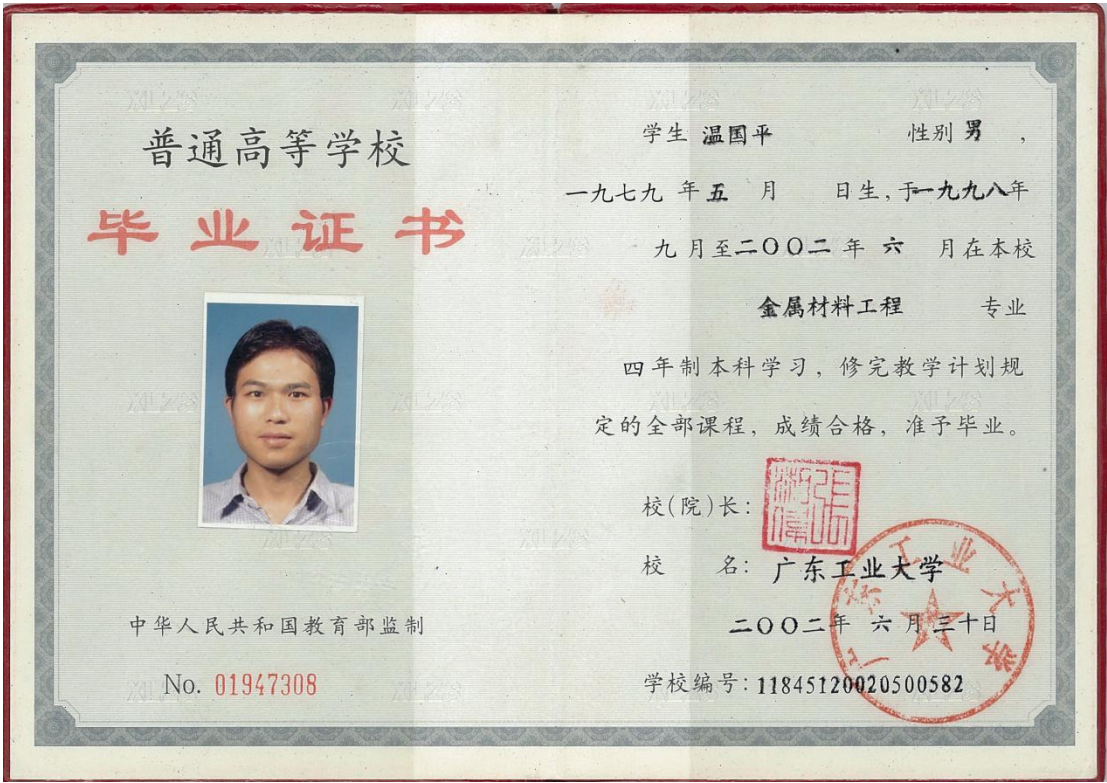 普通高等学校
毕业证书
中华人民共和国教育部监制
No. 01947308
学生 温国平 性别 男 ，
一九七九 年 五 月 日生，于一九九八年
九 月至二〇〇二 年 六 月在本校
金属材料工程 专业
四年制本科学习，修完教学计划规
定的全部课程，成绩合格，准予毕业。
校(院)长：
校 名：广东工业大学
二〇〇二年 六 月三十日
学校编号：11845120020500582
广东工业大学